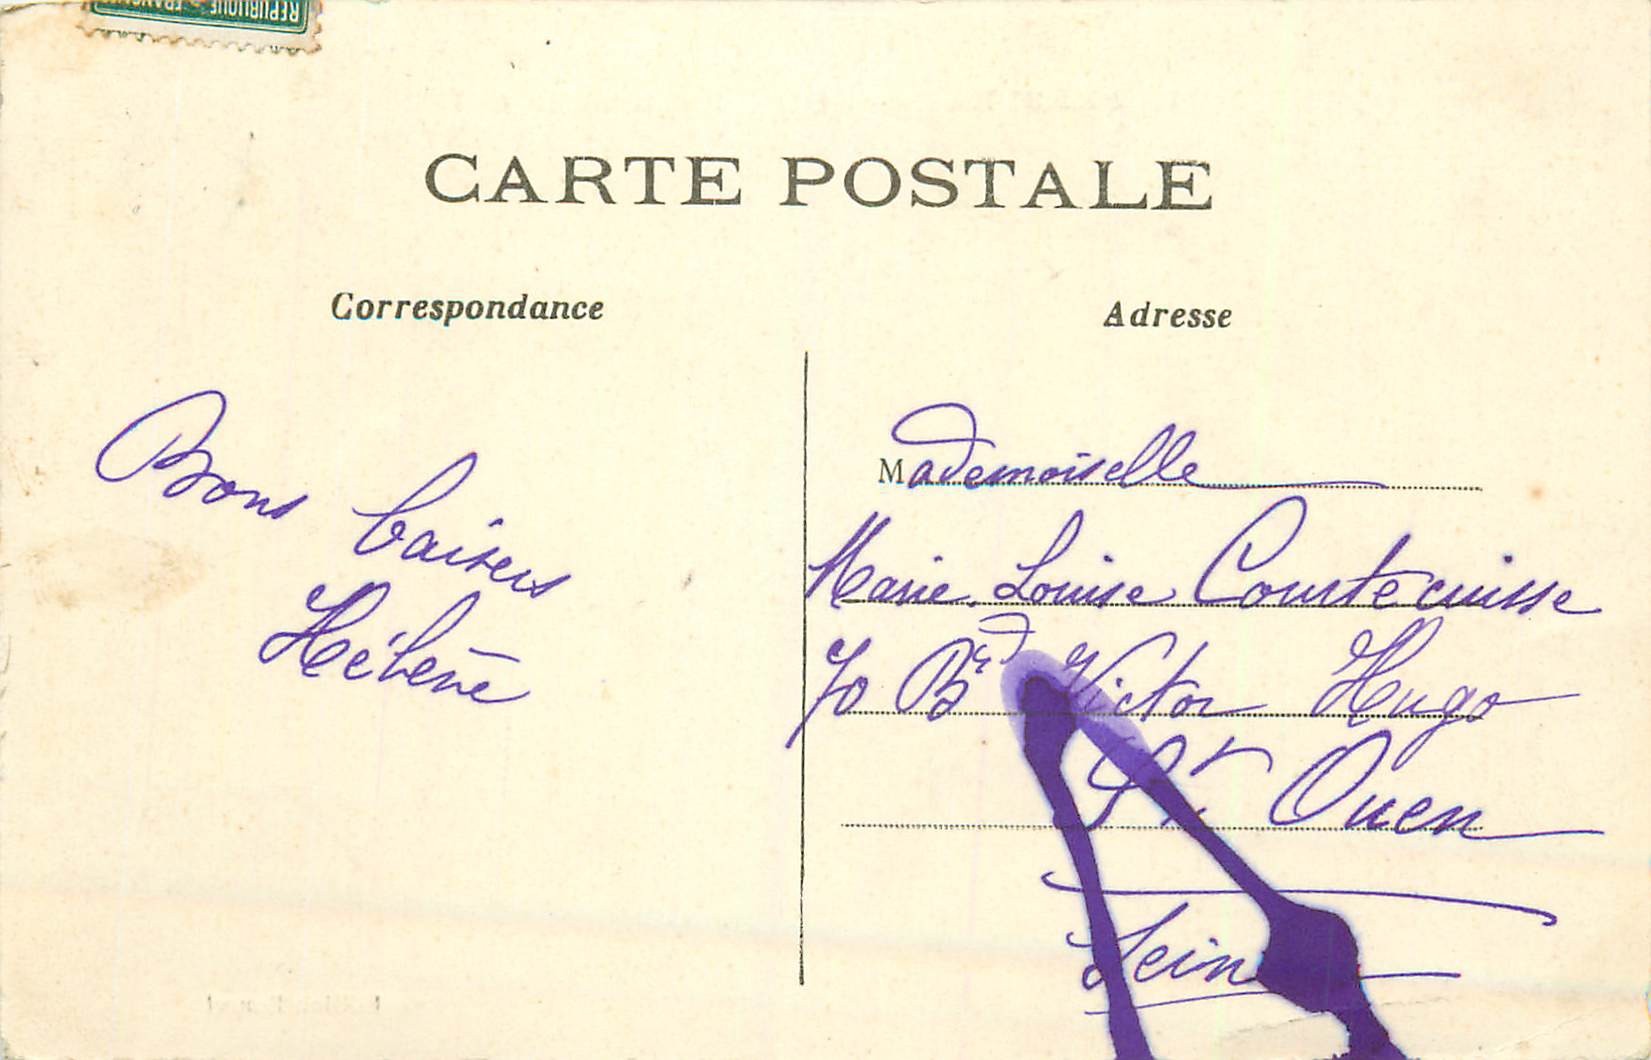 REPUBLIQUE FRANÇAISE
CARTE POSTALE
Correspondance
Adresse
Bons baisers
Hélène
Mademoiselle
Marie-Louise Courtecuisse
70 Bd Victor Hugo
St Ouen
Seine